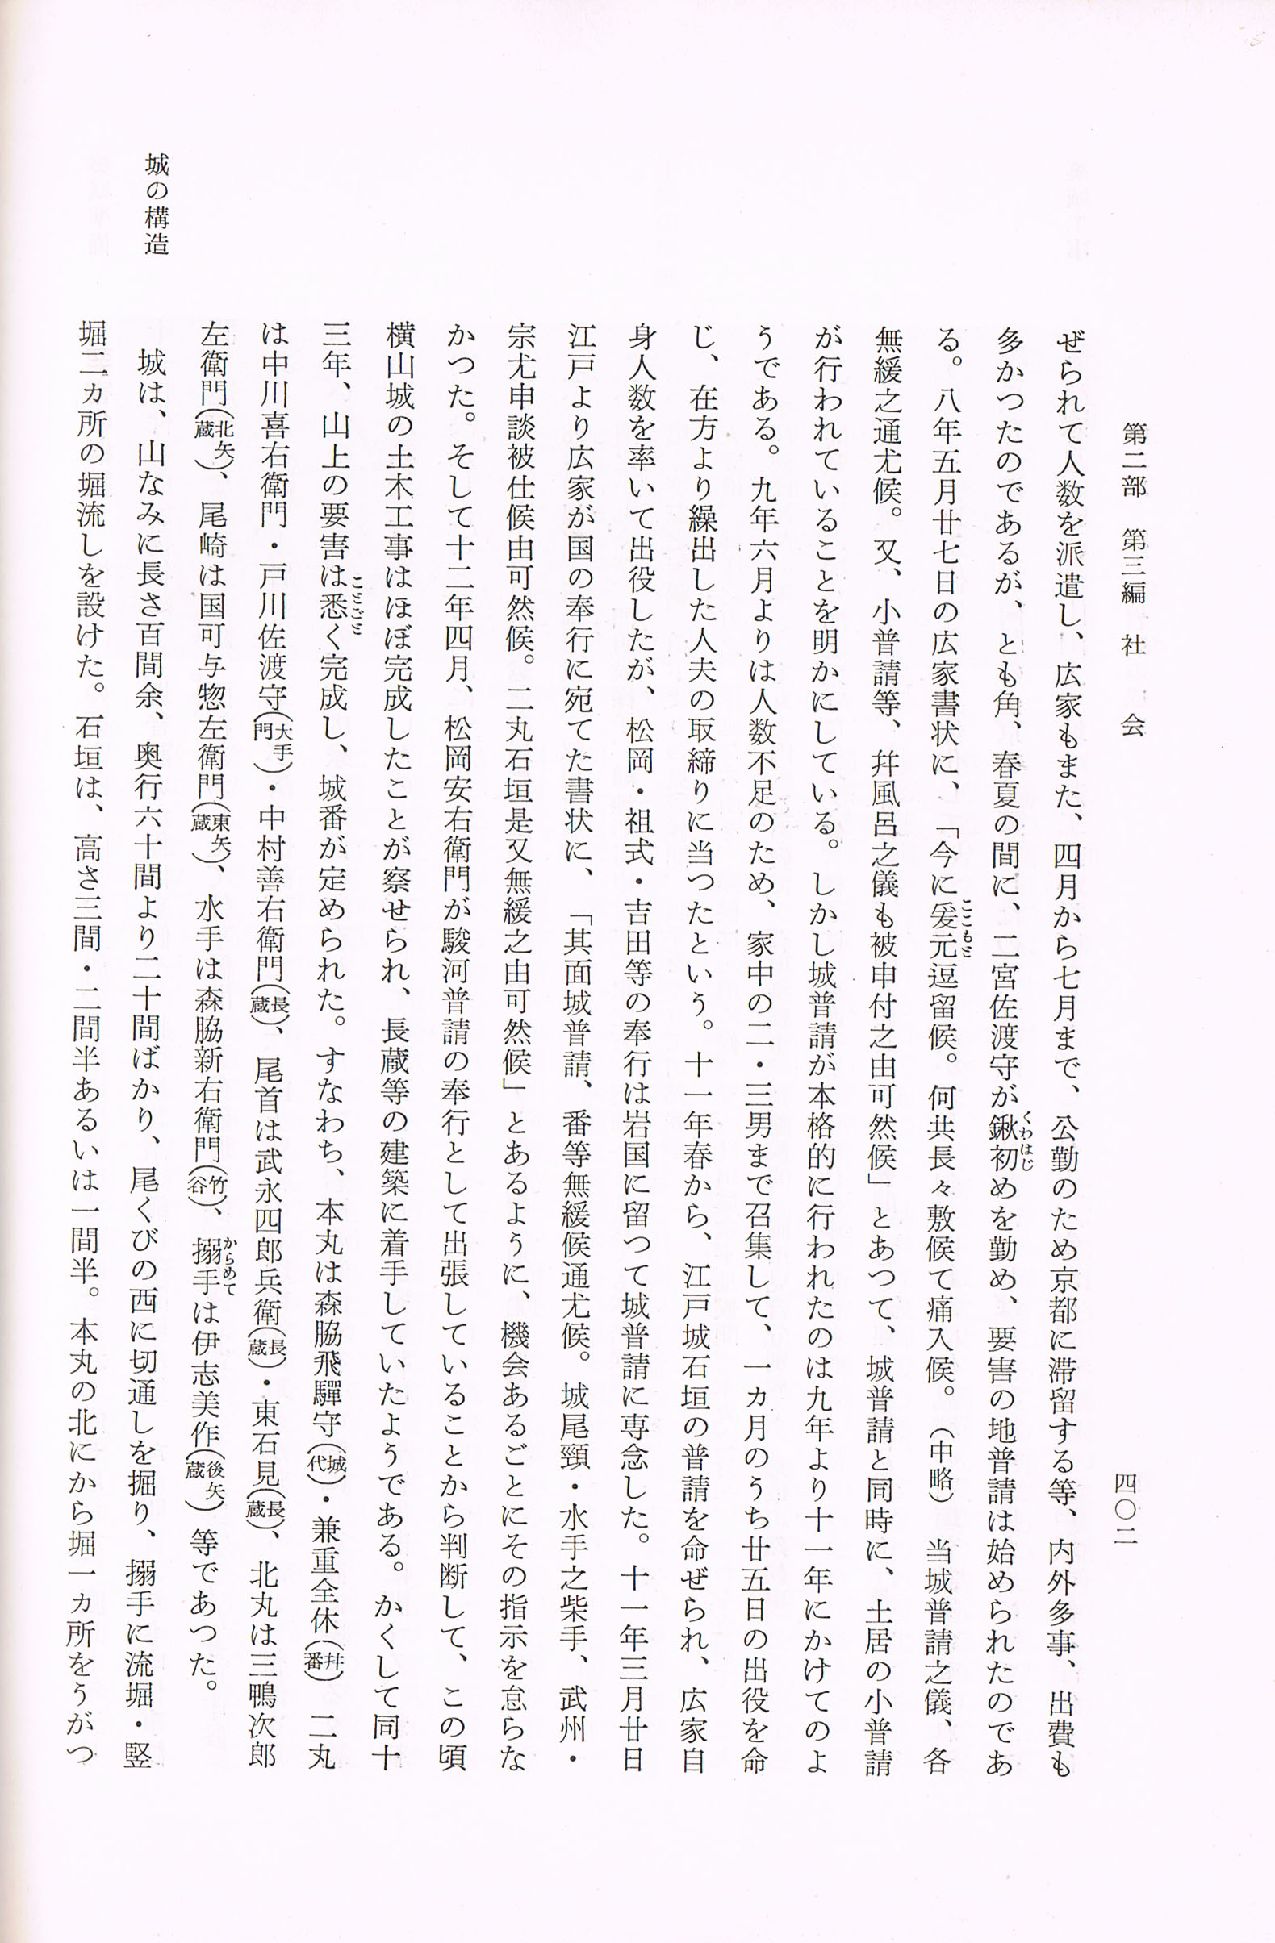 第二部　第三編　社　会
四〇二
ぜられて人数を派遣し、広家もまた、四月から七月まで、公勤のため京都に滞留する等、内外多事、出費も
多かつたのであるが、とも角、春夏の間に、二宮佐渡守が鍬初めを勤め、要害の地普請は始められたのであ
くわはじ
る。八年五月廿七日の広家書状に、「今に爰元逗留候。何共長々敷候て痛入候。（中略）　当城普請之儀、各
ここもと
無緩之通尤候。又、小普請等、幷風呂之儀も被申付之由可然候」とあつて、城普請と同時に、土居の小普請
が行われていることを明かにしている。しかし城普請が本格的に行われたのは九年より十一年にかけてのよ
うである。九年六月よりは人数不足のため、家中の二・三男まで召集して、一ヵ月のうち廿五日の出役を命
じ、在方より繰出した人夫の取締りに当つたという。十一年春から、江戸城石垣の普請を命ぜられ、広家自
身人数を率いて出役したが、松岡・祖式・吉田等の奉行は岩国に留つて城普請に専念した。十一年三月廿日
江戸より広家が国の奉行に宛てた書状に、「其面城普請、番等無緩候通尤候。城尾頸・水手之柴手、武州・
宗尤申談被仕候由可然候。二丸石垣是又無緩之由可然候」とあるように、機会あるごとにその指示を怠らな
かつた。そして十二年四月、松岡安右衛門が駿河普請の奉行として出張していることから判断して、この頃
横山城の土木工事はほぼ完成したことが察せられ、長蔵等の建築に着手していたようである。かくして同十
三年、山上の要害は悉く完成し、城番が定められた。すなわち、本丸は森脇飛驒守（城代）・兼重全休（幷番）　二丸
ことごと
は中川喜右衛門・戸川佐渡守（大手門）・中村善右衛門（長蔵）、尾首は武永四郎兵衛（長蔵）・東石見（長蔵）、北丸は三鴨次郎
左衛門（北矢蔵）、尾崎は国司与惣左衛門（東矢蔵）、水手は森脇新右衛門（竹谷）、搦手は伊志美作（後矢蔵）等であつた。
からめて
城の構造
城は、山なみに長さ百間余、奥行六十間より二十間ばかり、尾くびの西に切通しを掘り、搦手に流堀・竪
堀二ヵ所の堀流しを設けた。石垣は、高さ三間・二間半あるいは一間半。本丸の北にから堀一ヵ所をうがつ